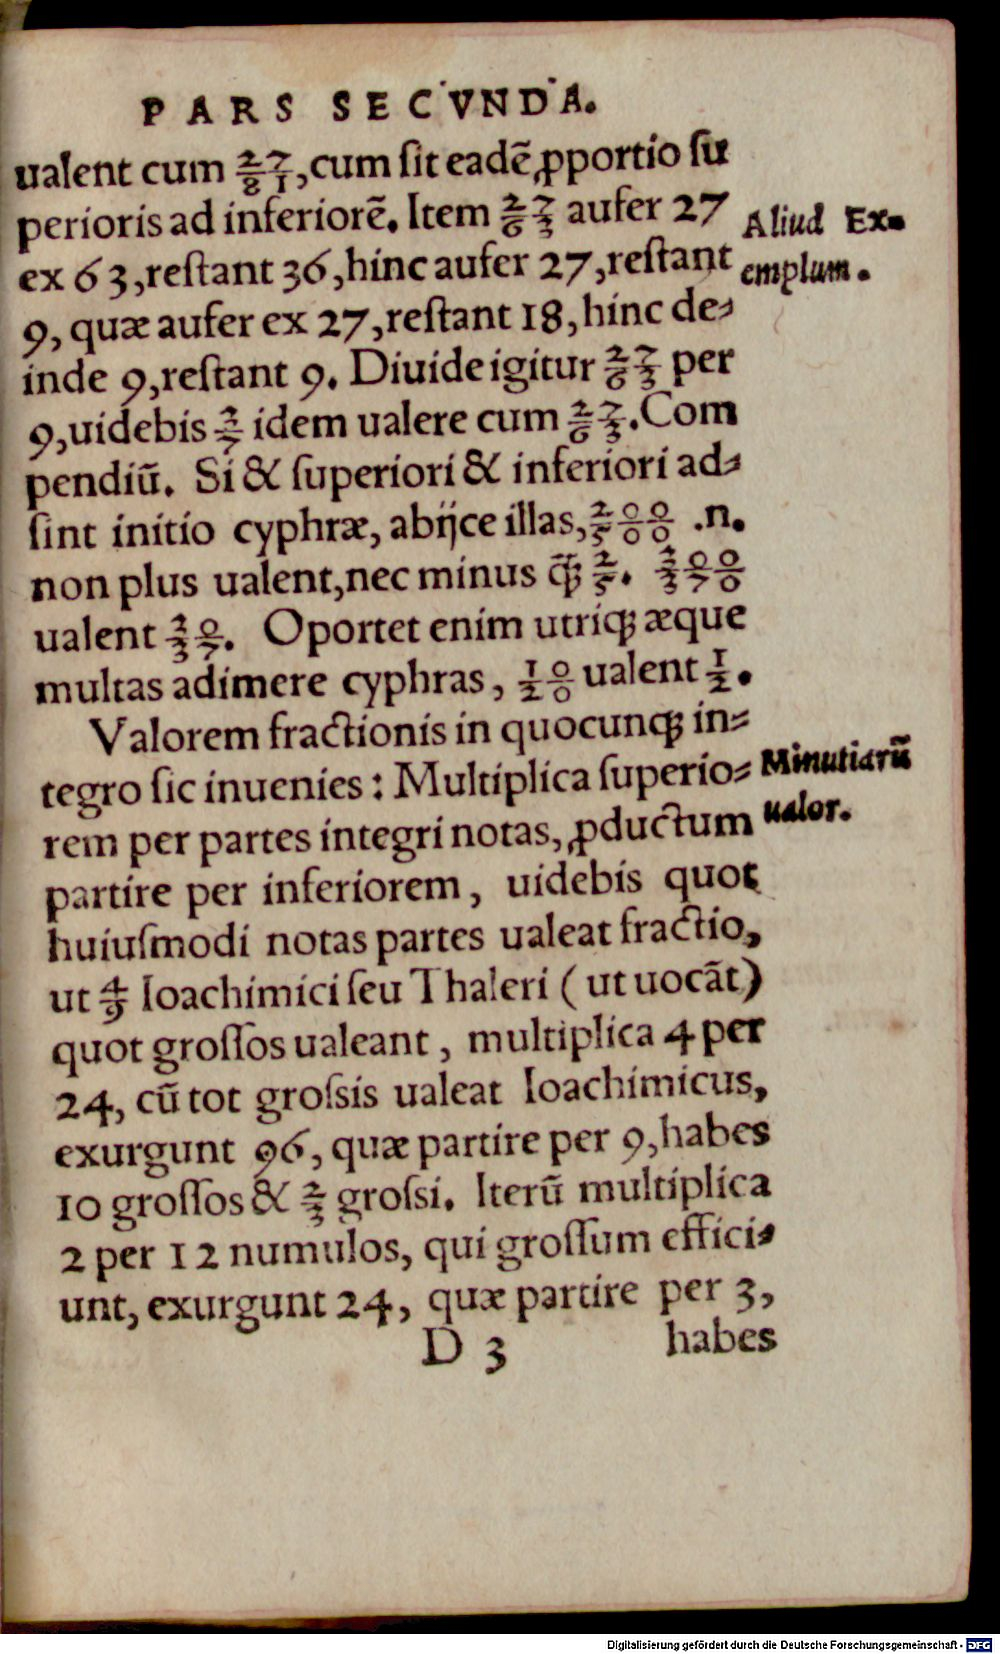 PARS SECVNDA.
ualent cum 27/81, cum sit eadē ꝓportio su
perioris ad inferiorē. Item 27/63 aufer 27
Aliud Ex-
ex 63, restant 36, hinc aufer 27, restant
emplum.
9, quæ aufer ex 27, restant 18, hinc de-
inde 9, restant 9. Diuide igitur 27/63 per
9, uidebis 3/7 idem ualere cum 27/63. Com
pendiū. Si & superiori & inferiori ad-
sint initio cyphræ, abijce illas, 200/500 .n.
non plus ualent, nec minus q̄ꝫ 2/5. 300/370
ualent 30/37. Oportet enim utriqꝫ æque
multas adimere cyphras, 10/20 ualent 1/2.
Valorem fractionis in quocunqꝫ in-
tegro sic inuenies: Multiplica superio-
Minutiarū
rem per partes integri notas, ꝓductum
ualor.
partire per inferiorem, uidebis quot
huiusmodi notas partes ualeat fractio,
ut 4/9 Ioachimici seu Thaleri (ut uocāt)
quot grossos ualeant, multiplica 4 per
24, cū tot grossis ualeat Ioachimicus,
exurgunt 96, quæ partire per 9, habes
10 grossos & 2/3 grossi. Iterū multiplica
2 per 12 numulos, qui grossum effici-
unt, exurgunt 24, quæ partire per 3,
D 3 habes
Digitalisierung gefördert durch die Deutsche Forschungsgemeinschaft - DFG